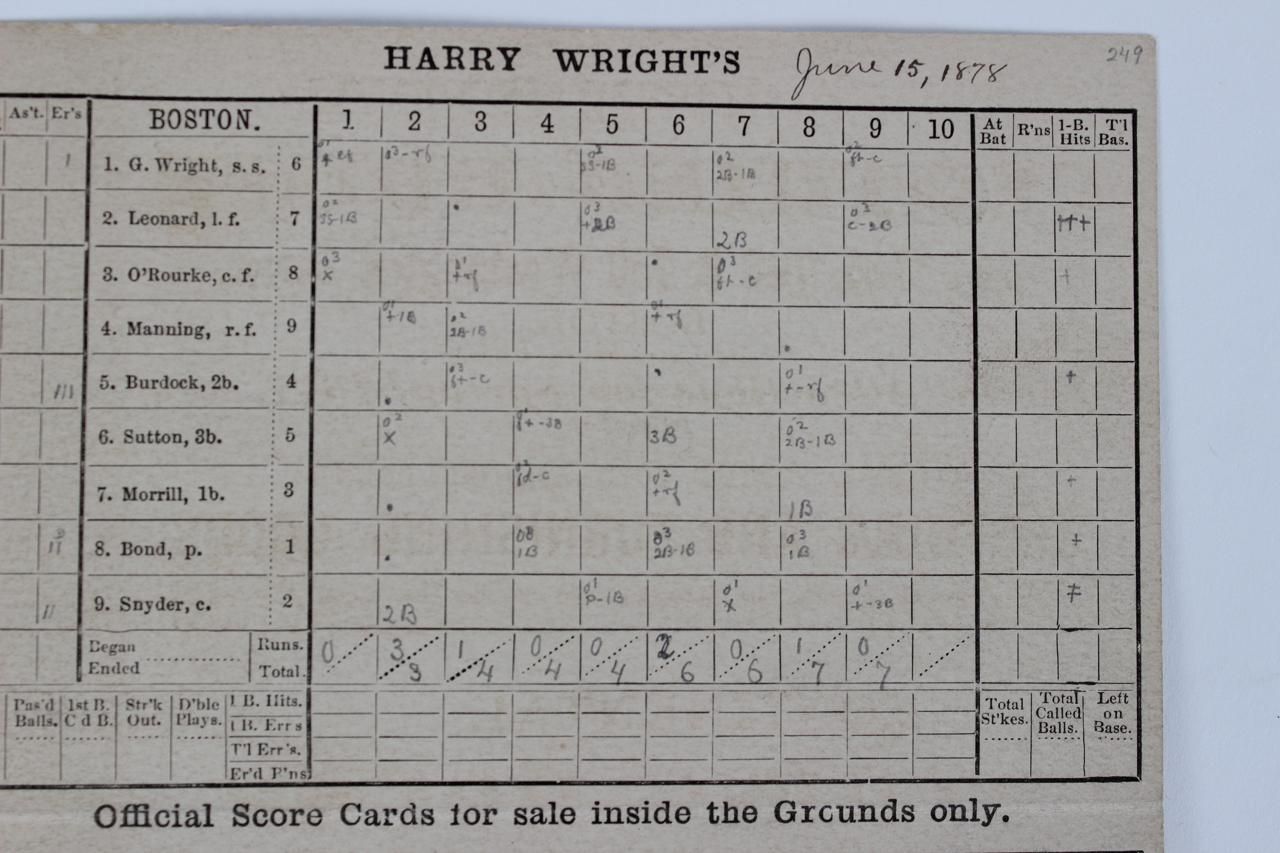 HARRY WRIGHT'S June 15, 1878 249
As't. Er's BOSTON. 1 2 3 4 5 6 7 8 9 10 At Bat R'ns 1-B. Hits T'l Bas.
1. G. Wright, s. s. 6 o3-rf o2 2B-1B
2. Leonard, l. f. 7 o2 SS-1B o3 2B o3 c-2B
3. O'Rourke, c. f. 8 o3 x o1 +rf o3 ft-c
4. Manning, r. f. 9 o1 +1B o2 2B-1B o1 +rf
5. Burdock, 2b. 4 o3 ft-c o1 +-rf
6. Sutton, 3b. 5 o2 x 3B o2 2B-1B
7. Morrill, 1b. 3 o2 +rf 1B
8. Bond, p. 1 1B o3 2B-1B o3 1B
9. Snyder, c. 2 2B o1 P-1B o1 x o1 +-3B
Began Runs. 0 3 1 0 0 2 0 1 0
Ended Total. 3 4 4 4 6 6 7 7
Pas'd Balls. 1st B. C d B. Str'k Out. D'ble Plays. 1 B. Hits. Total St'kes. Total Called Balls. Left on Base.
1 B. Err s
T'l Err's.
Er'd P'ns
Official Score Cards for sale inside the Grounds only.